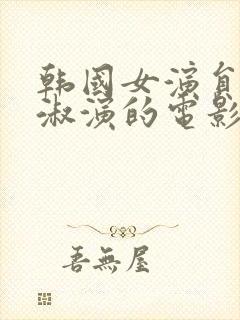 韩國女演員
淑演的電影
吾無屋